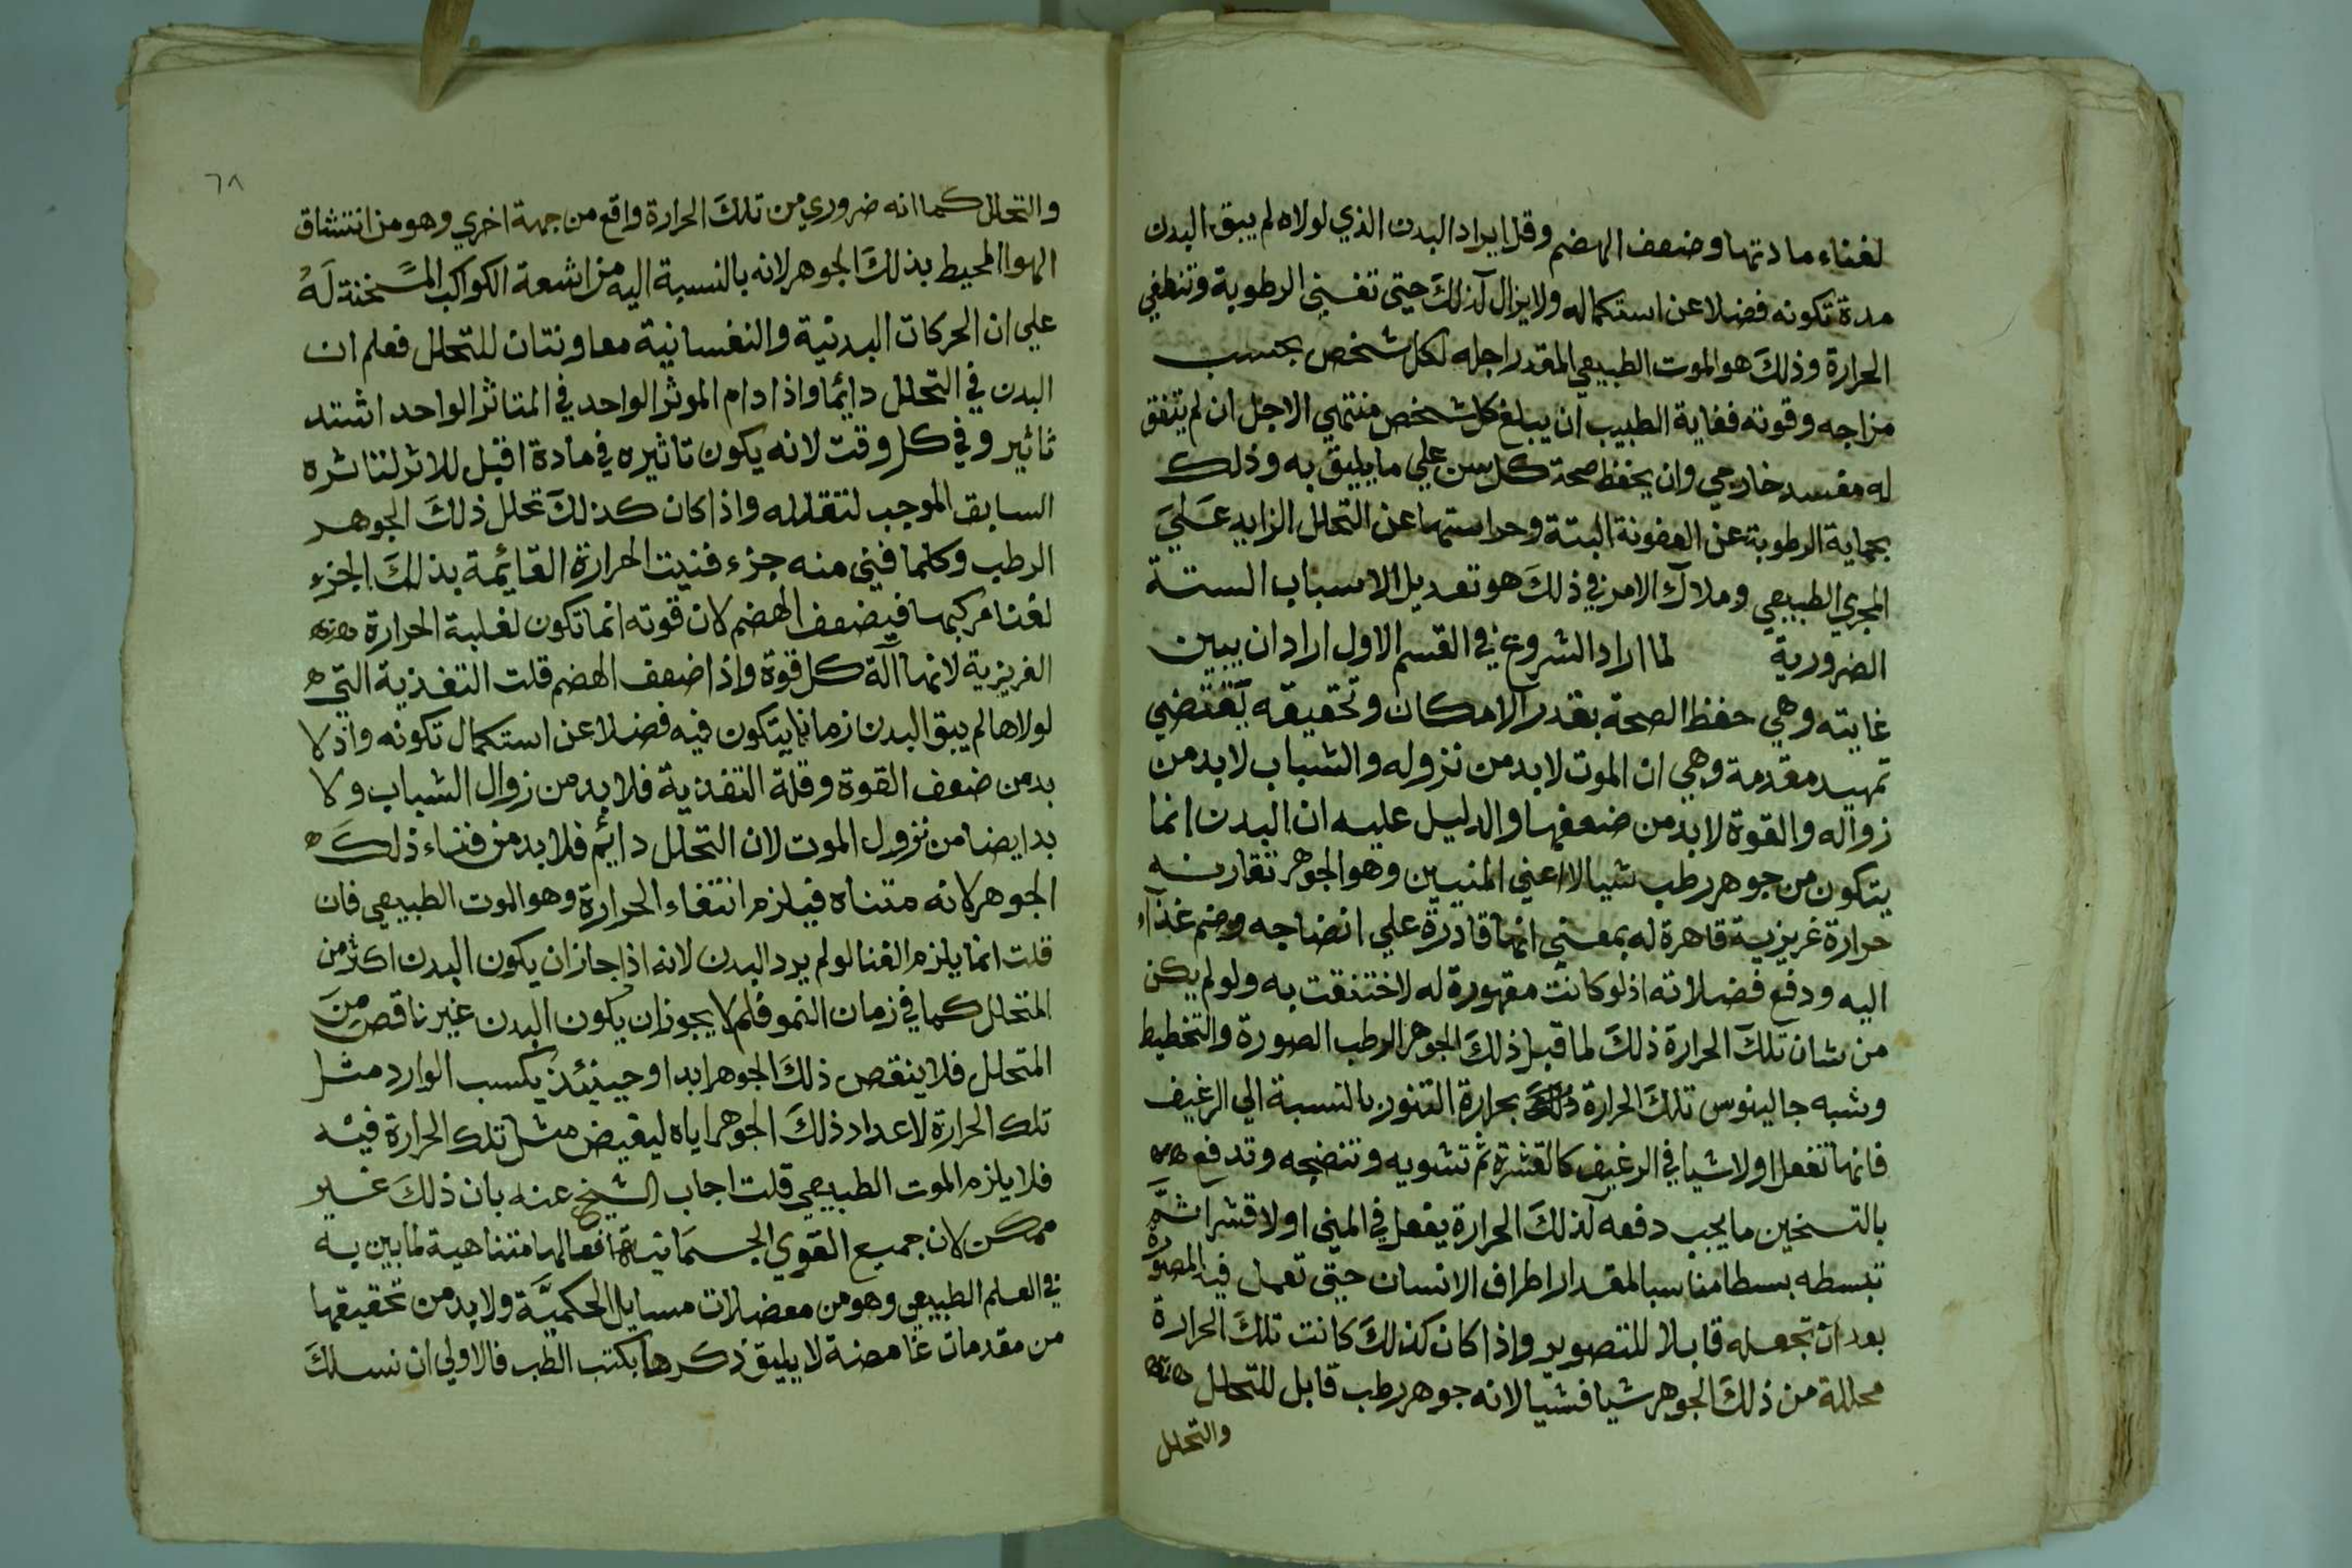 لفناء مادتها وضعف الهضم وقل ايراد البدن الذي لولاه لم يبق البدن
مدة تكونه فضلا عن استكماله ولا يزال كذلك حتى تفني الرطوبة وتنطفي
الحرارة وذلك هو الموت الطبيعي المقدر اجله لكل شخص بحسب
مزاجه وقوته فغاية الطبيب ان يبلغ كل شخص منتهي الاجل ان لم يتفق
له مفسد خارجي وان يحفظ صحة كل سن علي ما يليق به وذلك
بحماية الرطوبة عن العفونة البتة وحراستها عن التحلل الزايد علي
المجري الطبيعي وملاك الامر في ذلك هو تعديل الاسباب الستة
الضرورية لما اراد الشروع في القسم الاول اراد ان يبين
غايته وهي حفظ الصحة بقدر الامكان وتحقيقه يقتضي
تمهيد مقدمة وهي ان الموت لا بد من نزوله والشباب لا بد من
زواله والقوة لا بد من ضعفها والدليل عليه ان البدن انما
يتكون من جوهر رطب سيالا اعني المنيين وهو الجوهر تقارنه
حرارة غريزية قاهرة له بمعني انها قادرة علي انضاجه وضم غذاء
اليه ودفع فضلاته اذ لو كانت مقهورة له لاختنقت به ولو لم يكن
من شان تلك الحرارة ذلك لما قبل ذلك الجوهر الرطب الصورة والتخطيط
وشبه جالينوس تلك الحرارة بحرارة التنور بالنسبة الي الرغيف
فانها تفعل اولا شيا في الرغيف كالقشرة ثم تشويه وتنضجه وتدفع
بالتسخين ما يجب دفعه كذلك الحرارة يفعل في المني اولا قشرا ثم
تبسطه بسطا مناسبا لمقدار اطراف الانسان حتى تعمل فيه المصورة
بعد ان تجعله قابلا للتصوير واذا كان كذلك كانت تلك الحرارة
محللة من ذلك الجوهر شيا فشيا لانه جوهر رطب قابل للتحلل
والتحلل
٦٨
والتحلل كما انه ضروري من تلك الحرارة واقع من جهة اخري وهو من انتشاق
الهوا المحيط بذلك الجوهر لانه بالنسبة اليه من اشعة الكواكب المسخنة له
علي ان الحركات البدنية والنفسانية معاونتان للتحلل فعلم ان
البدن في التحلل دائما واذا دام الموثر الواحد في المتاثر الواحد اشتد
تاثير وفي كل وقت لانه يكون تاثيره في مادة اقبل للاثر لتاثره
السابق الموجب لتقلله واذا كان كذلك تحلل ذلك الجوهر
الرطب وكلما فني منه جزء فنيت الحرارة القائمة بذلك الجزء
لفنا مركبها فيضعف الهضم لان قوته انما تكون لغلبة الحرارة
الغريزية لانها آلة كل قوة واذا ضعف الهضم قلت التغذية التي
لولاها لم يبق البدن زمانا يتكون فيه فضلا عن استكمال تكونه واذ لا
بد من ضعف القوة وقلة التغذية فلا بد من زوال الشباب ولا
بد ايضا من نزول الموت لان التحلل دايم فلا بد من فناء ذلك
الجوهر لانه متناه فيلزم انتفاء الحرارة وهو الموت الطبيعي فان
قلت انما يلزم الفنا لو لم يرد البدن لانه اذا جاز ان يكون البدن اكثر من
المتحلل كما في زمان النمو فلم لا يجوز ان يكون البدن غير ناقص من
المتحلل فلا ينقص ذلك الجوهر ابدا وحينئذ يكسب الوارد مثل
تلك الحرارة لاعداد ذلك الجوهر اياه ليفيض مثل تلك الحرارة فيه
فلا يلزم الموت الطبيعي قلت اجاب الشيخ عنه بان ذلك غير
ممكن لان جميع القوي الجسمانية افعالها متناهية لما بين به
في العلم الطبيعي وهو من معضلات مسايل الحكمية ولا بد من تحقيقها
من مقدمات غامضة لا يليق ذكرها بكتب الطب فالاولي ان نسلك